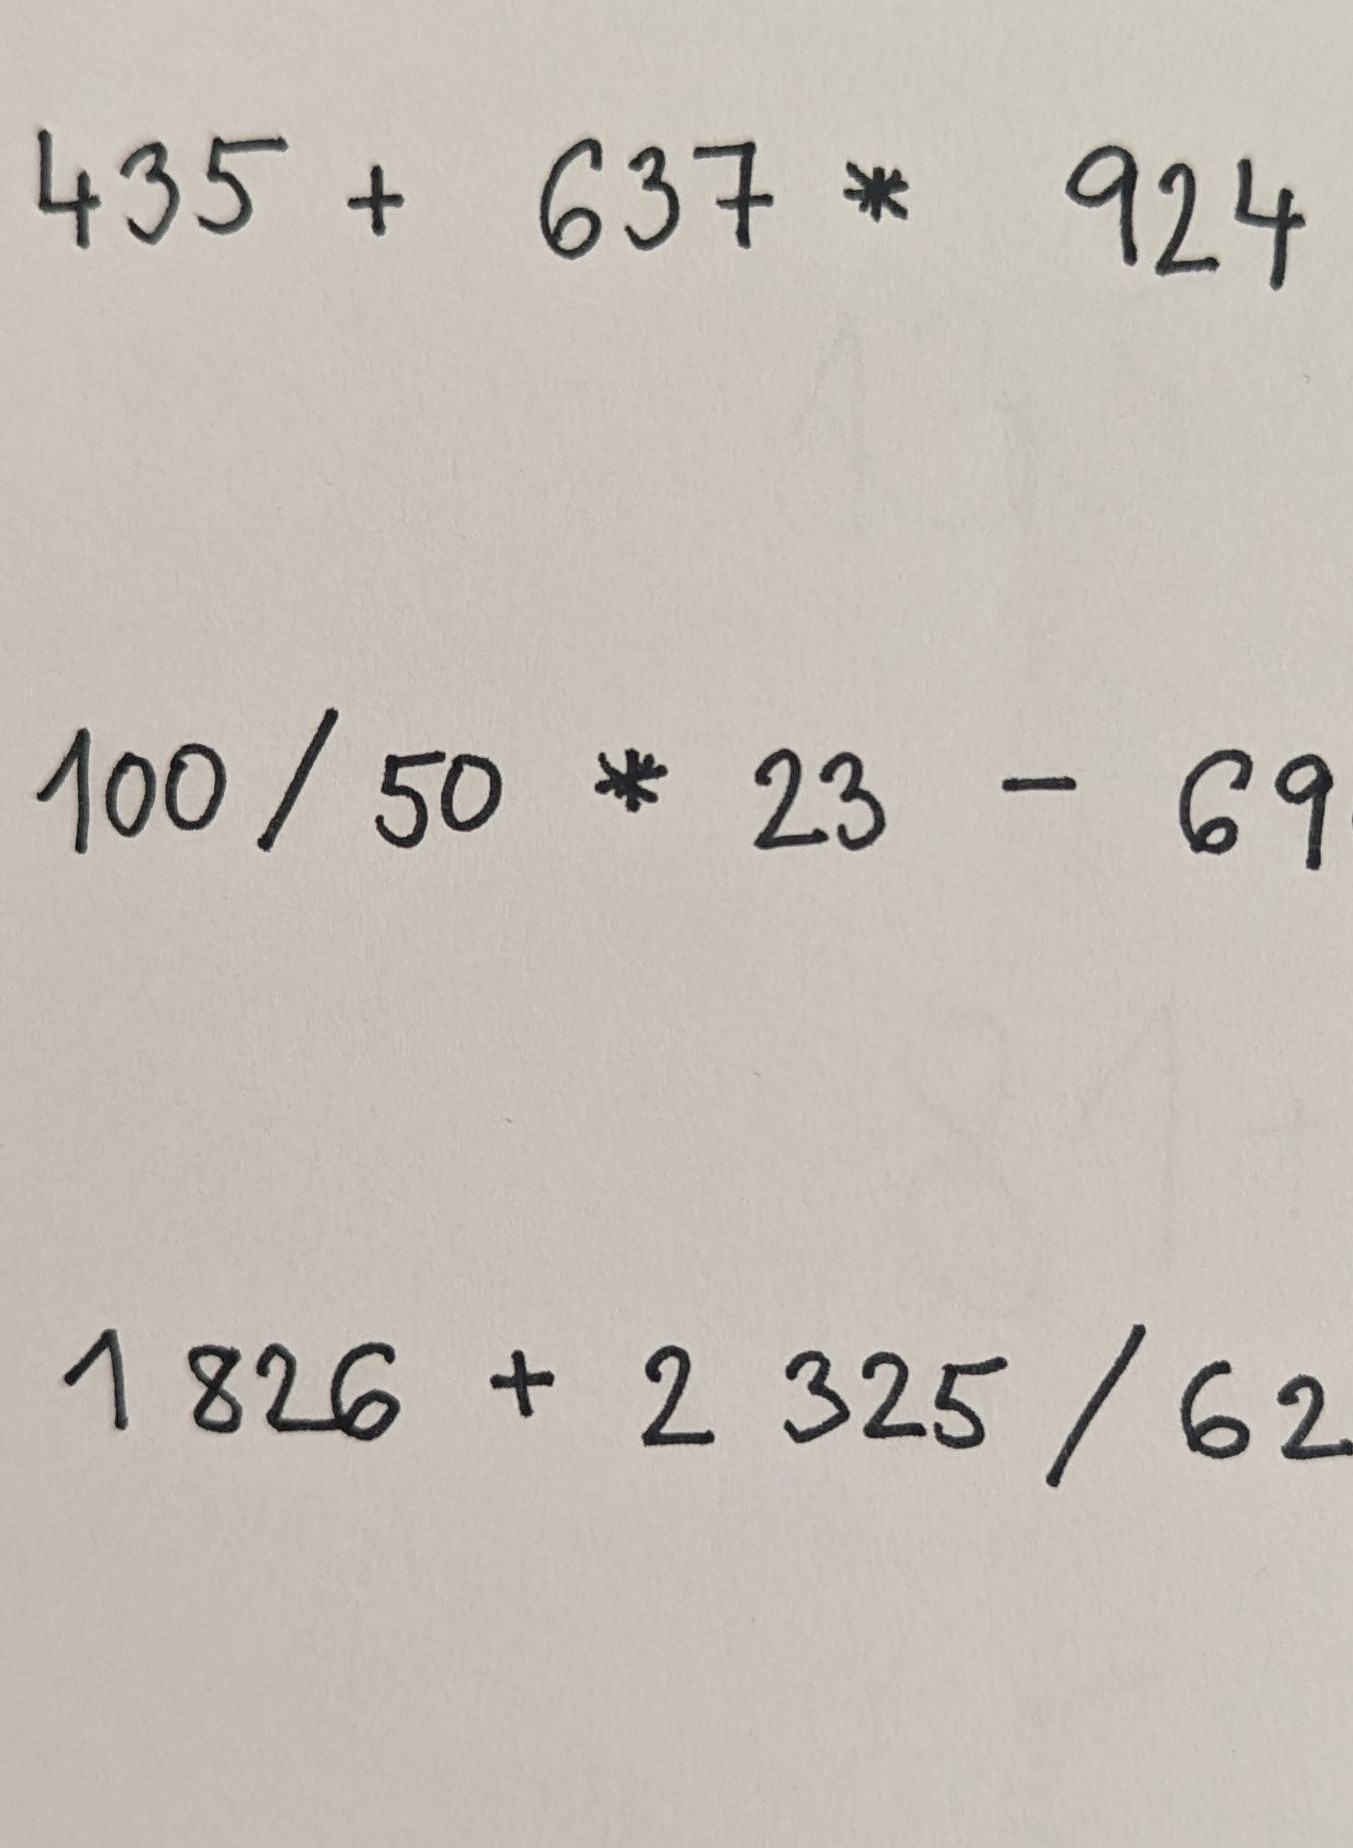 435 + 637 * 924
100 / 50 * 23 - 69
1 826 + 2 325 / 62